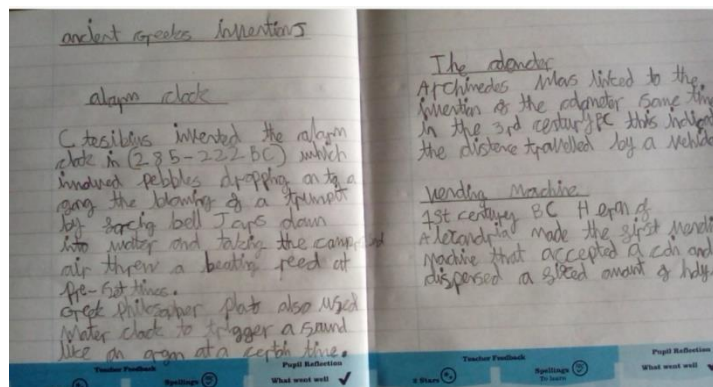 ancient Greeks inventions
alarm clock
Ctesibius invented the alarm
clock in (285-222BC) which
involved pebbles dropping on to a
gong the blowing of a trumpt
by forcing bell Jars down
into water and taking the compressed
air threw a beating reed at
Pre-set times.
Greek philosopher plato also used
water clock to trigger a sound
like an organ at a certin time.
Teacher Feedback
Pupil Reflection
Spellings
What went well
The odometer
Archimedes was linked to the
invention of the odometer some time
in the 3rd century BC this
the distence travelled by a vehicle
Vending Machine
1st century BC Heron of
Alexandria made the first
machine that accepted a coin and
dispersed a fixed amount of holy
Teacher Feedback
Pupil Reflection
2 Stars
Spellings
To learn
What went well